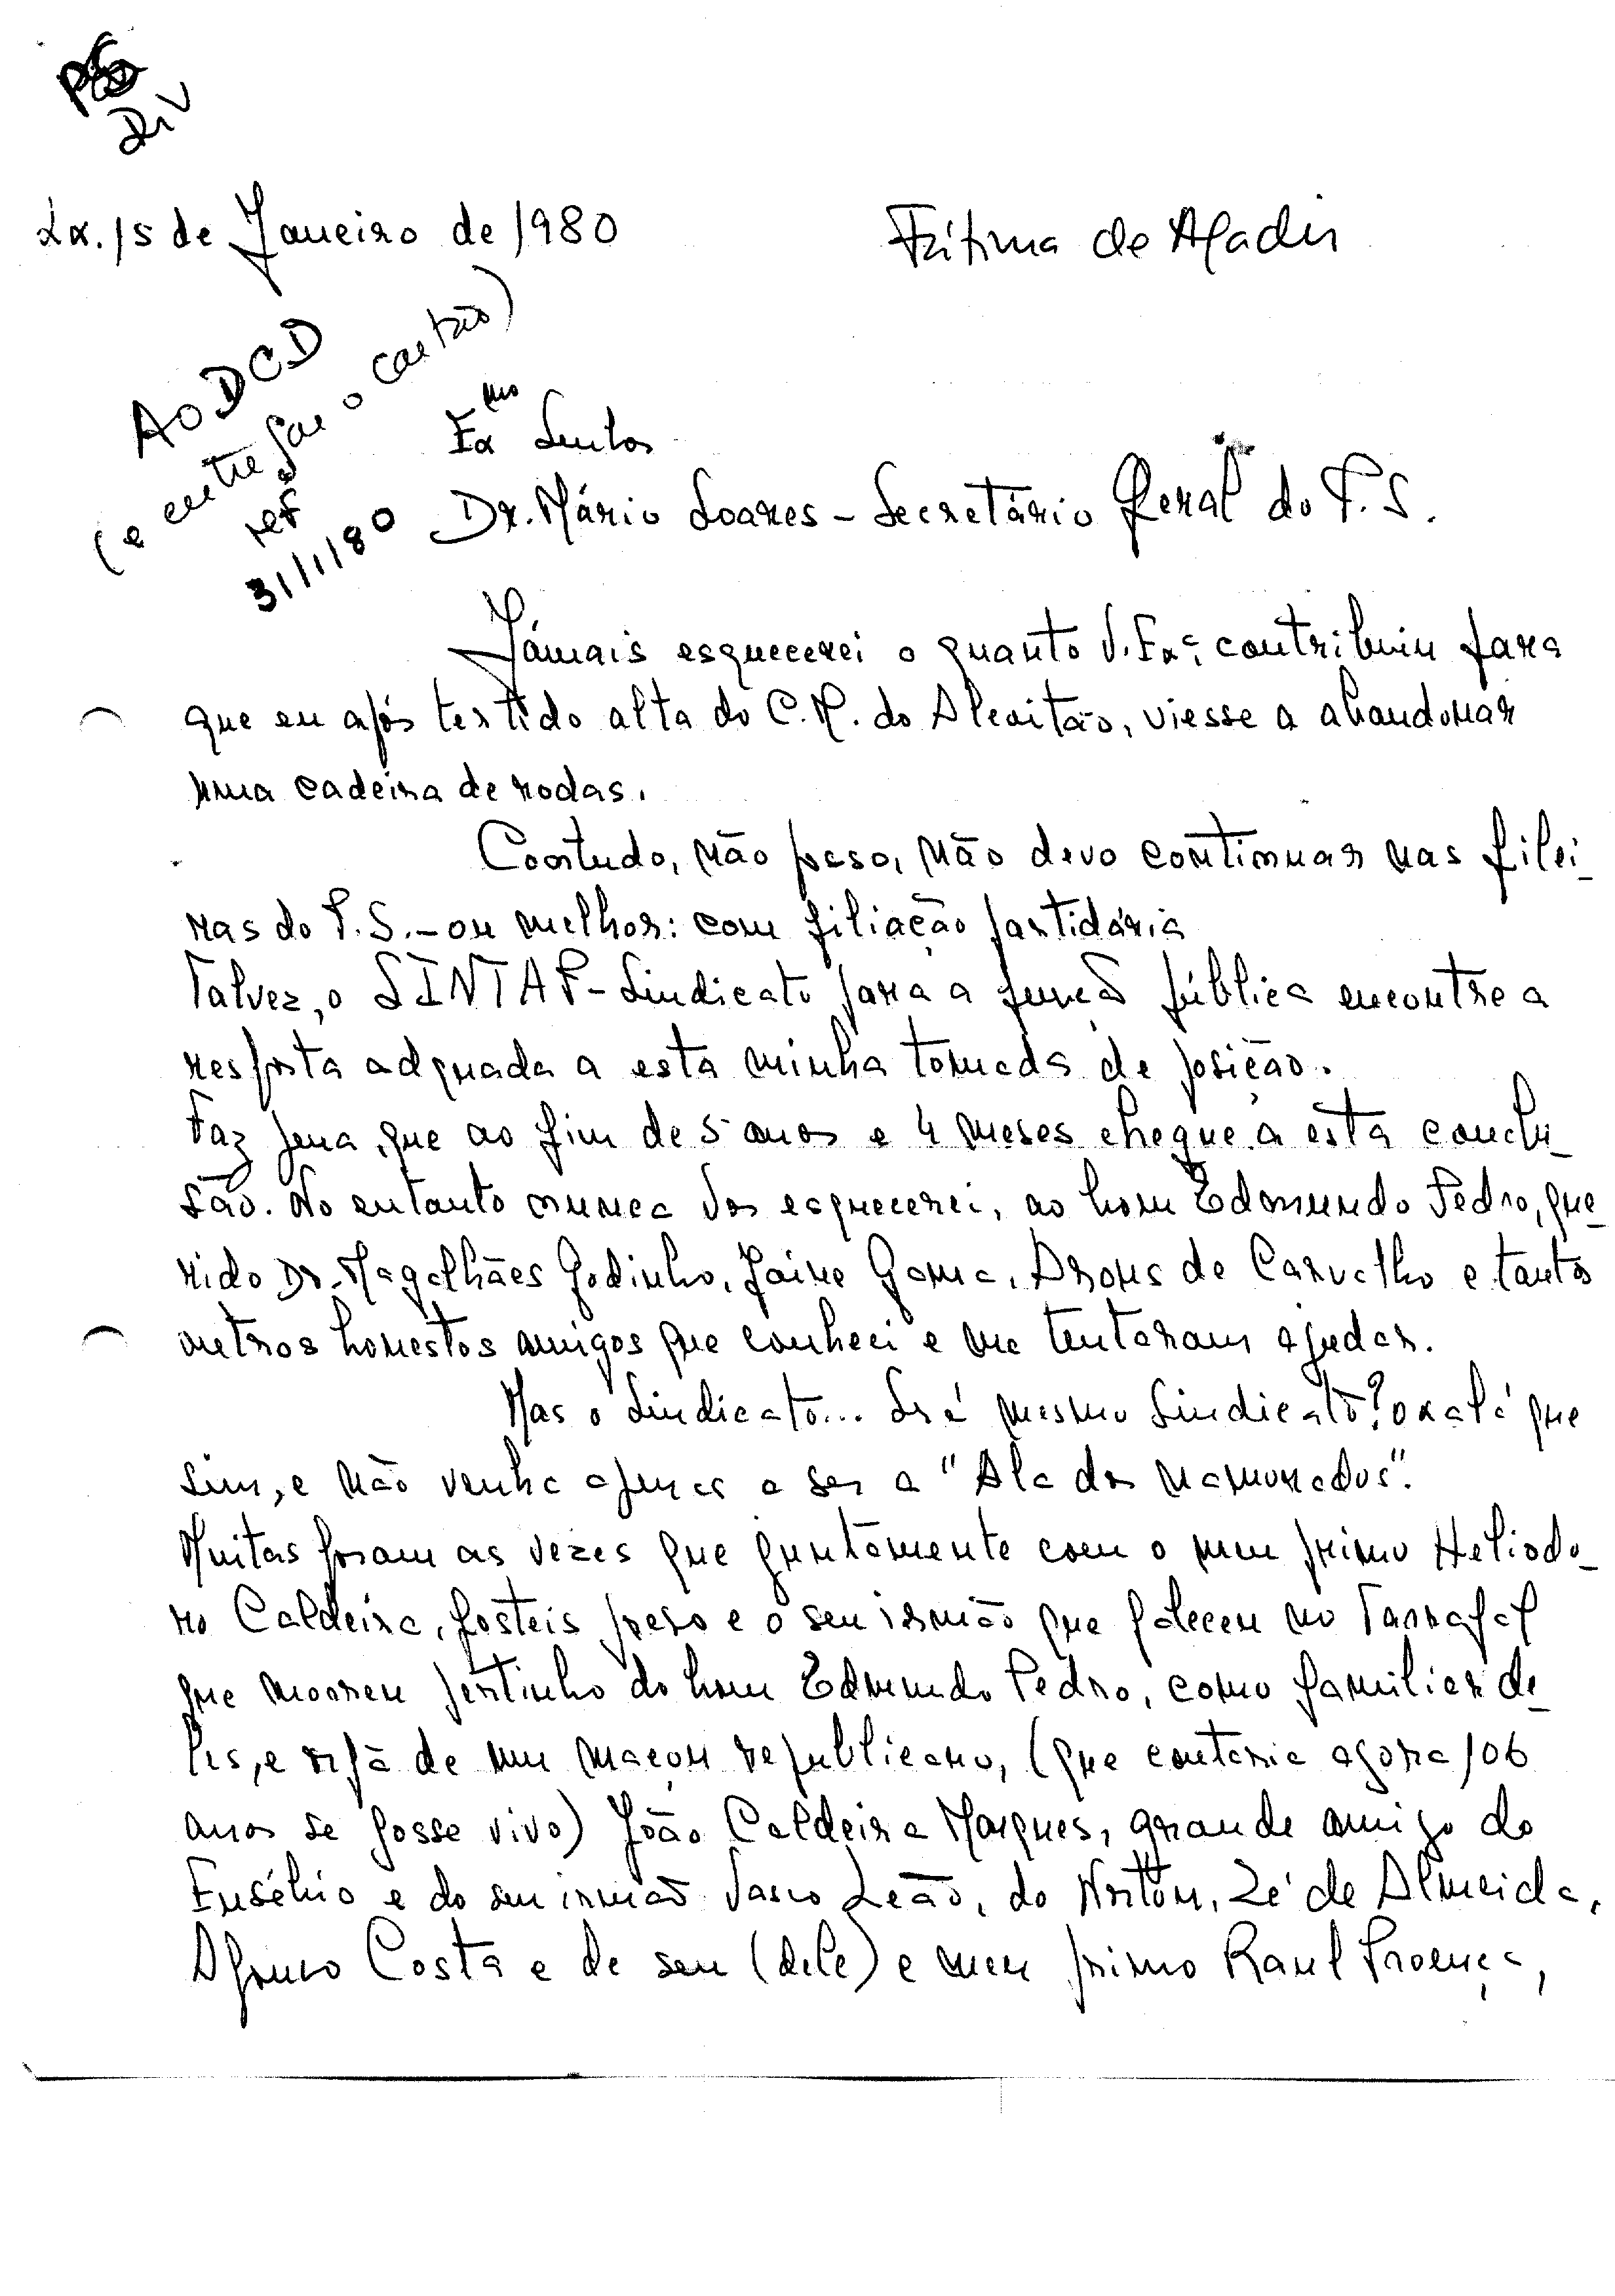 PS
Div
Lx. 15 de Janeiro de 1980
Fátima de
AO DCD
(e entregar o cartão)
ref
31/1/80
Exmo Senhor
Dr. Mário Soares - Secretário Geral do P.S.
Jámais esquecerei o quanto V. Exª. contribuiu para
que eu após ter tido alta do C.M. do Alcoitão, viesse a abandonar
uma cadeira de rodas.
Contudo, não posso, não devo continuar nas filei-
ras do P.S. - ou melhor: com filiação partidária
Talvez, o SINTAP - Sindicato para a função pública encontre a
resposta adquada a esta minha tomada de posição.
Faz pena, que ao fim de 5 anos e 4 meses chegue a esta conclu-
são. No entanto nunca vos esquecerei, ao bom Edmundo Pedro, que-
rido Dr. Magalhães Godinho, Jaime Gama, Arons de Carvalho e tantos
outros honestos amigos que conheci e me tentaram ajudar.
Mas o Sindicato... Será mesmo Sindicato? oxalá que
sim, e não venha apenas a ser a "Ala dos Namorados".
Muitas foram as vezes que juntamente com o meu primo Heliodo-
ro Caldeira, fosteis preso e o seu irmão que faleceu no Tarrafal
que morreu pertinho do bom Edmundo Pedro, como familiar de-
les, e de um maçon republicano, (que contaria agora 106
anos se fosse vivo) João Caldeira Marques, grande amigo do
Eusébio e do seu irmão Vasco Leão, do Norton, Zé de Almeida,
Afonso Costa e de seu (dele) e meu primo Raul Proença,